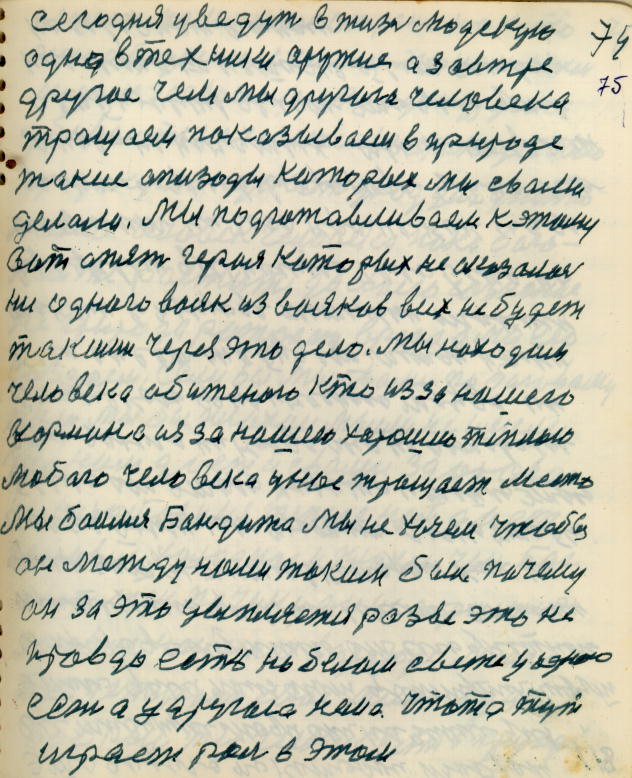 сегодня уведут в жизн людскую 74
одно в техники оружие а завтре 75
другое чем мы другога человека
тращаем показываем в природе
такие эпизоды которых мы сваеи
делали. Мы подготавливаем к этому
вот опят героя которых не оказалос
ни одного вояк из вояков вих не будет
такими через это дело. Мы находим
человека обиженого кто из за нашего
кормана из за нашего хорошего тёплого
любого человека у нас тращает место
Мы боимся Бандита мы не хочем чтобы
он между нами таким был почему
он за это
розве это не
правдо есть на белом свете у одного
есть а у другога нема. Что то тут
играет рол в этом